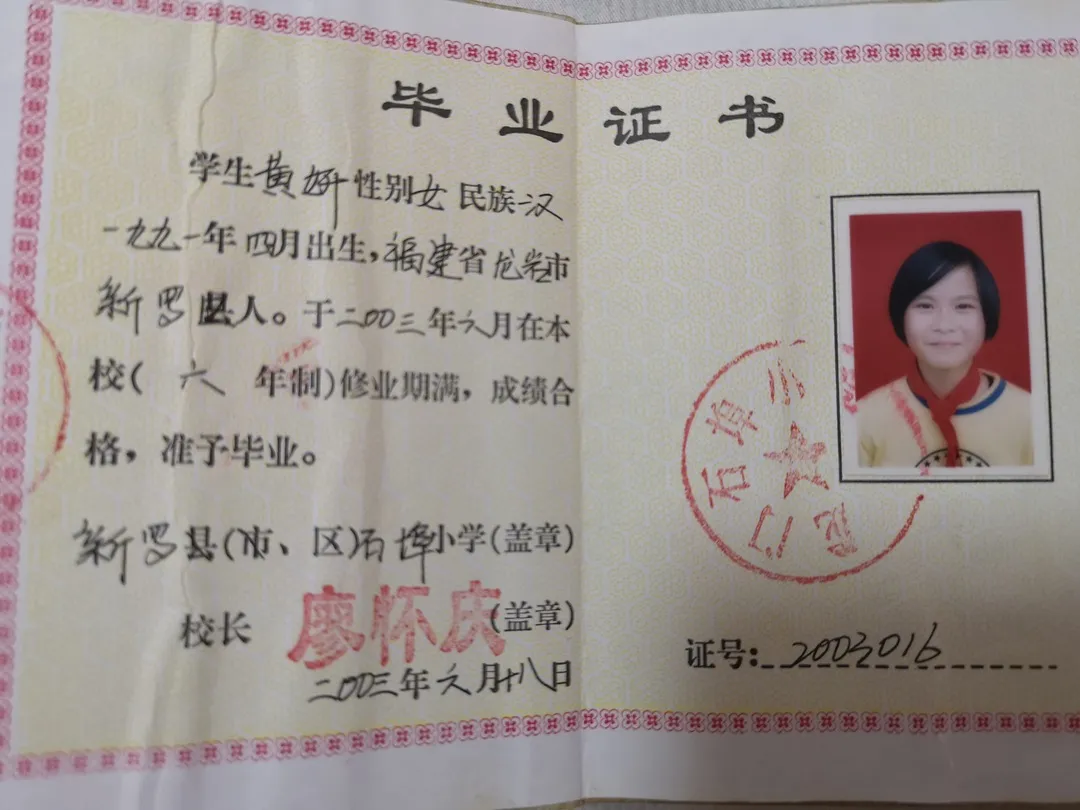 毕业证书
学生黄妍性别女民族汉
一九九一年四月出生，福建省龙岩市
新罗县人。于二00三年六月在本
校(六年制)修业期满，成绩合
格，准予毕业。
新罗县(市、区)石埠小学(盖章)
校长 廖怀庆(盖章)
二00三年六月十八日
龙门石埠小
证号:2003016